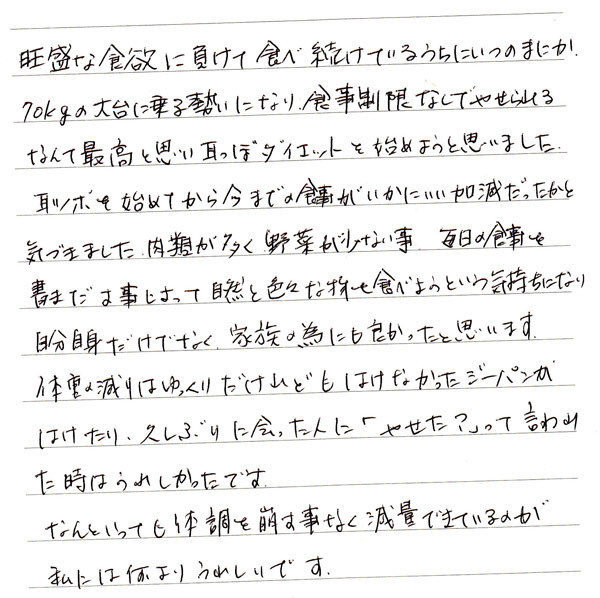 旺盛な食欲に負けて食べ続けているうちにいつのまにか、
70kgの大台に乗る勢いになり、食事制限なしでやせられる
なんて最高と思い耳つぼダイエットを始めようと思いました。
耳ツボを始めてから今までの食事がいかにいい加減だったかと
気づきました。肉類が多く、野菜が少ない事、毎日の食事を
書きだす事によって自然と色々な物を食べようという気持ちになり
自分自身だけでなく、家族の為にも良かったと思います。
体重の減りはゆっくりだけれどもはけなかったジーパンが
はけたり、久しぶりに会った人に「やせた?」って言われ
た時はうれしかったです。
なんといっても体調を崩す事なく減量できているのが
私には何よりうれしいです。